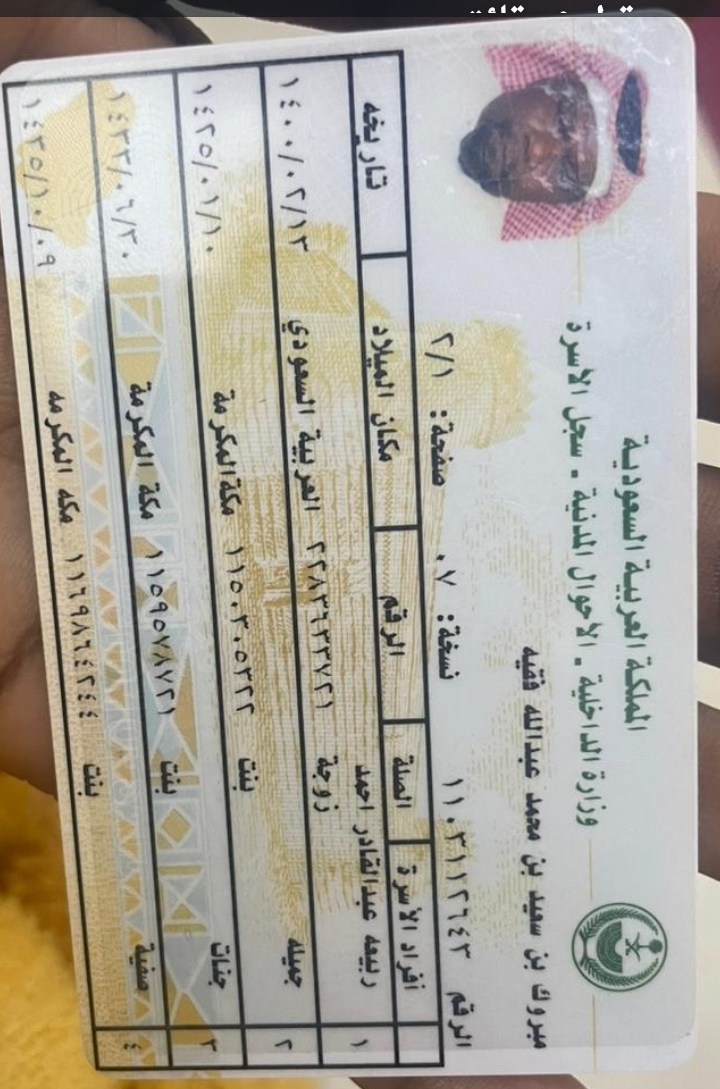 المملكة العربية السعودية
وزارة الداخلية - الأحوال المدنية - سجل الأسرة
مبروك بن سعيد بن محمد عبدالله فقيه
الرقم ١١٠٣١١٢٦٤٣ نسخة: ٠٧ صفحة: ٢/١
أفراد الأسرة الصلة الرقم مكان الميلاد تاريخه
١ ربيعه عبدالقادر احمد زوجة ٢٢٨٣٦٣٣٧٢١ العربية السعودي ١٤٠٠/٠٢/١٣
٢ جميله بنت ١١٥٠٣٠٥٣٢٢ مكة المكرمة ١٤٢٥/٠١/١٠
٣ جنات بنت ١١٥٩٥٧٨٧٢١ مكة المكرمة ١٤٣٣/٠٦/٣٠
٤ صفية بنت ١١٦٩٨٦٤٢٤٤ مكه المكرمه ١٤٣٥/١٠/٠٩